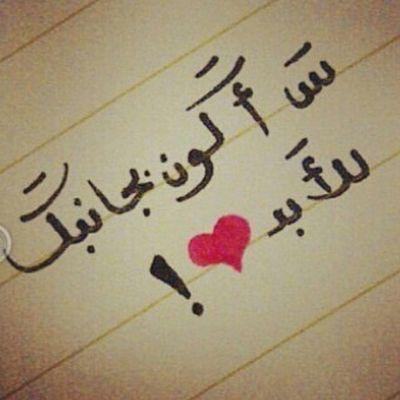 سَأكون بجانبكَ
للأبد ❤ !